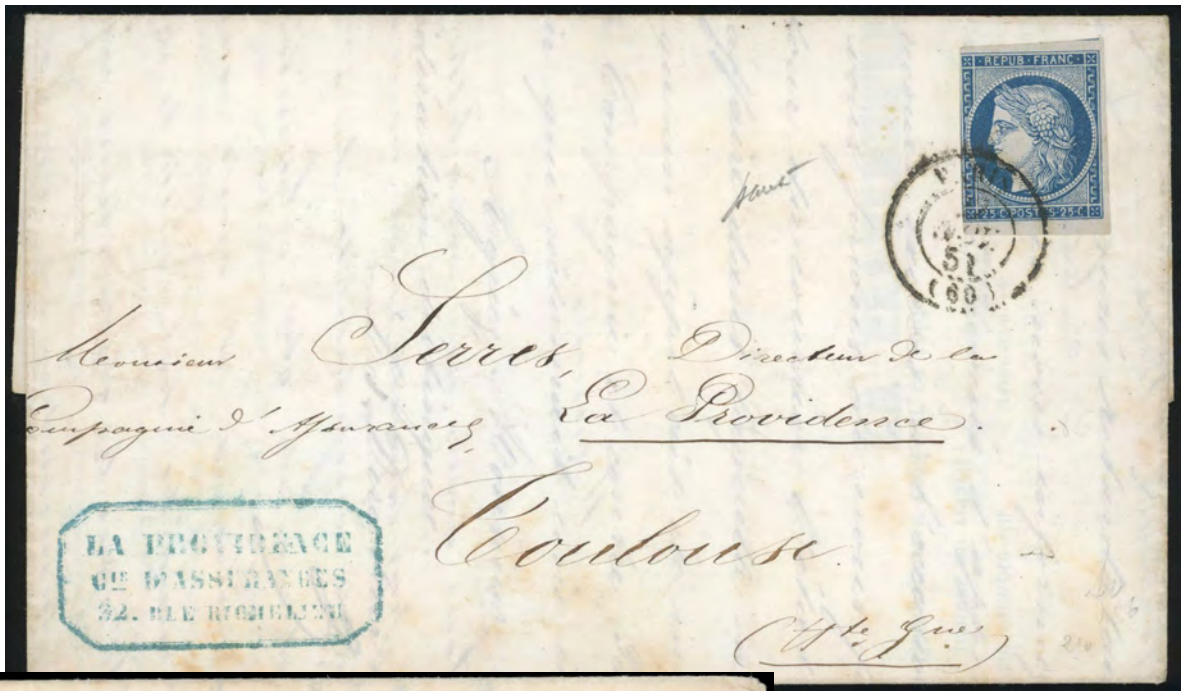 REPUB·FRANC·
25·C·POSTES·25·C
51
(60)
Monsieur Serres, Directeur de la
Compagnie d'Assurances, La Providence.
Toulouse.
(Hte Gne)
LA PROVIDENCE
CIE D'ASSURANCES
32. RUE RICHELIEU